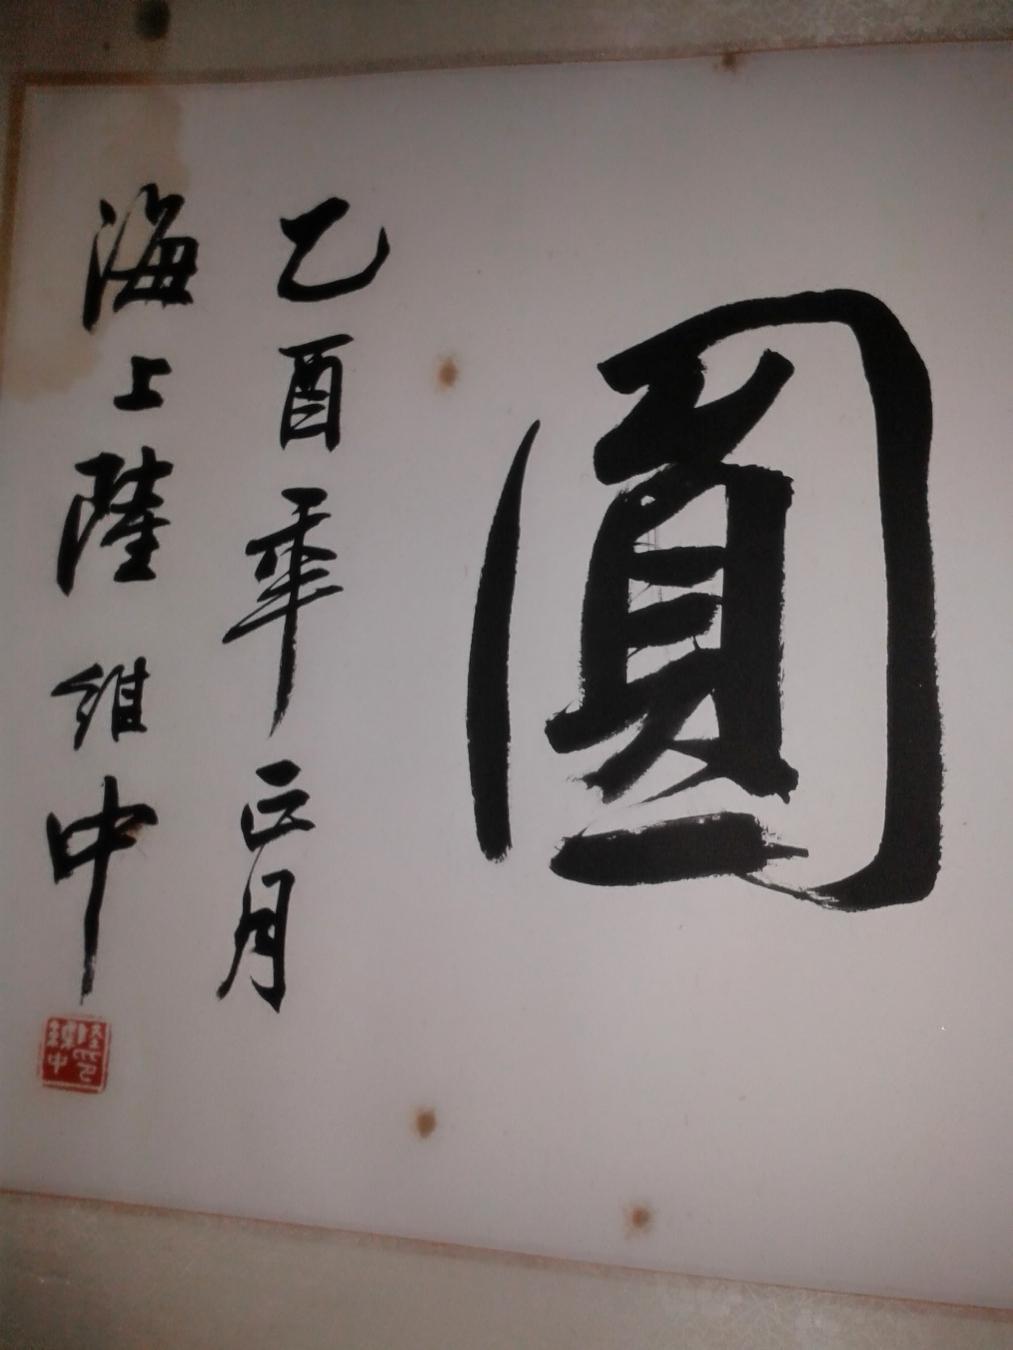 圓
乙酉年正月
海上陸維中